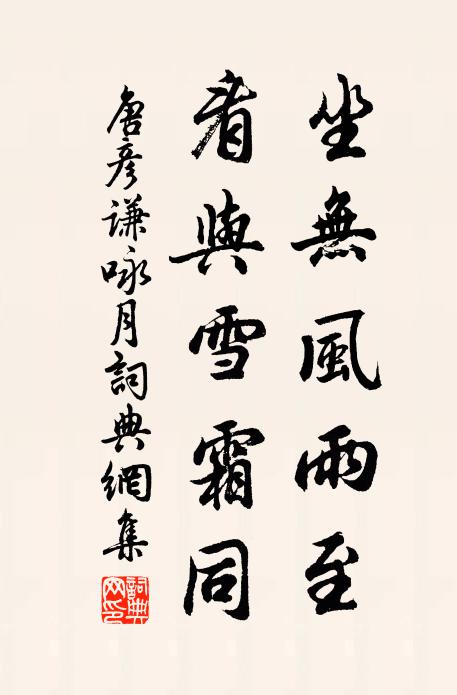 坐無風雨至
看與雪霜同
唐彥謙詠月詞典網集
詞典網印